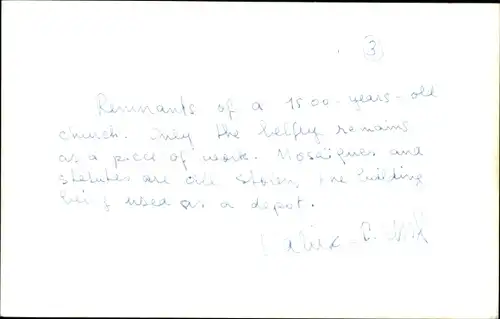 3
Remnants of a 1500-years-old
church. Only the belfry remains
as a piece of work. Mosaïques and
statutes are all stolen, the building
being used as a depot.